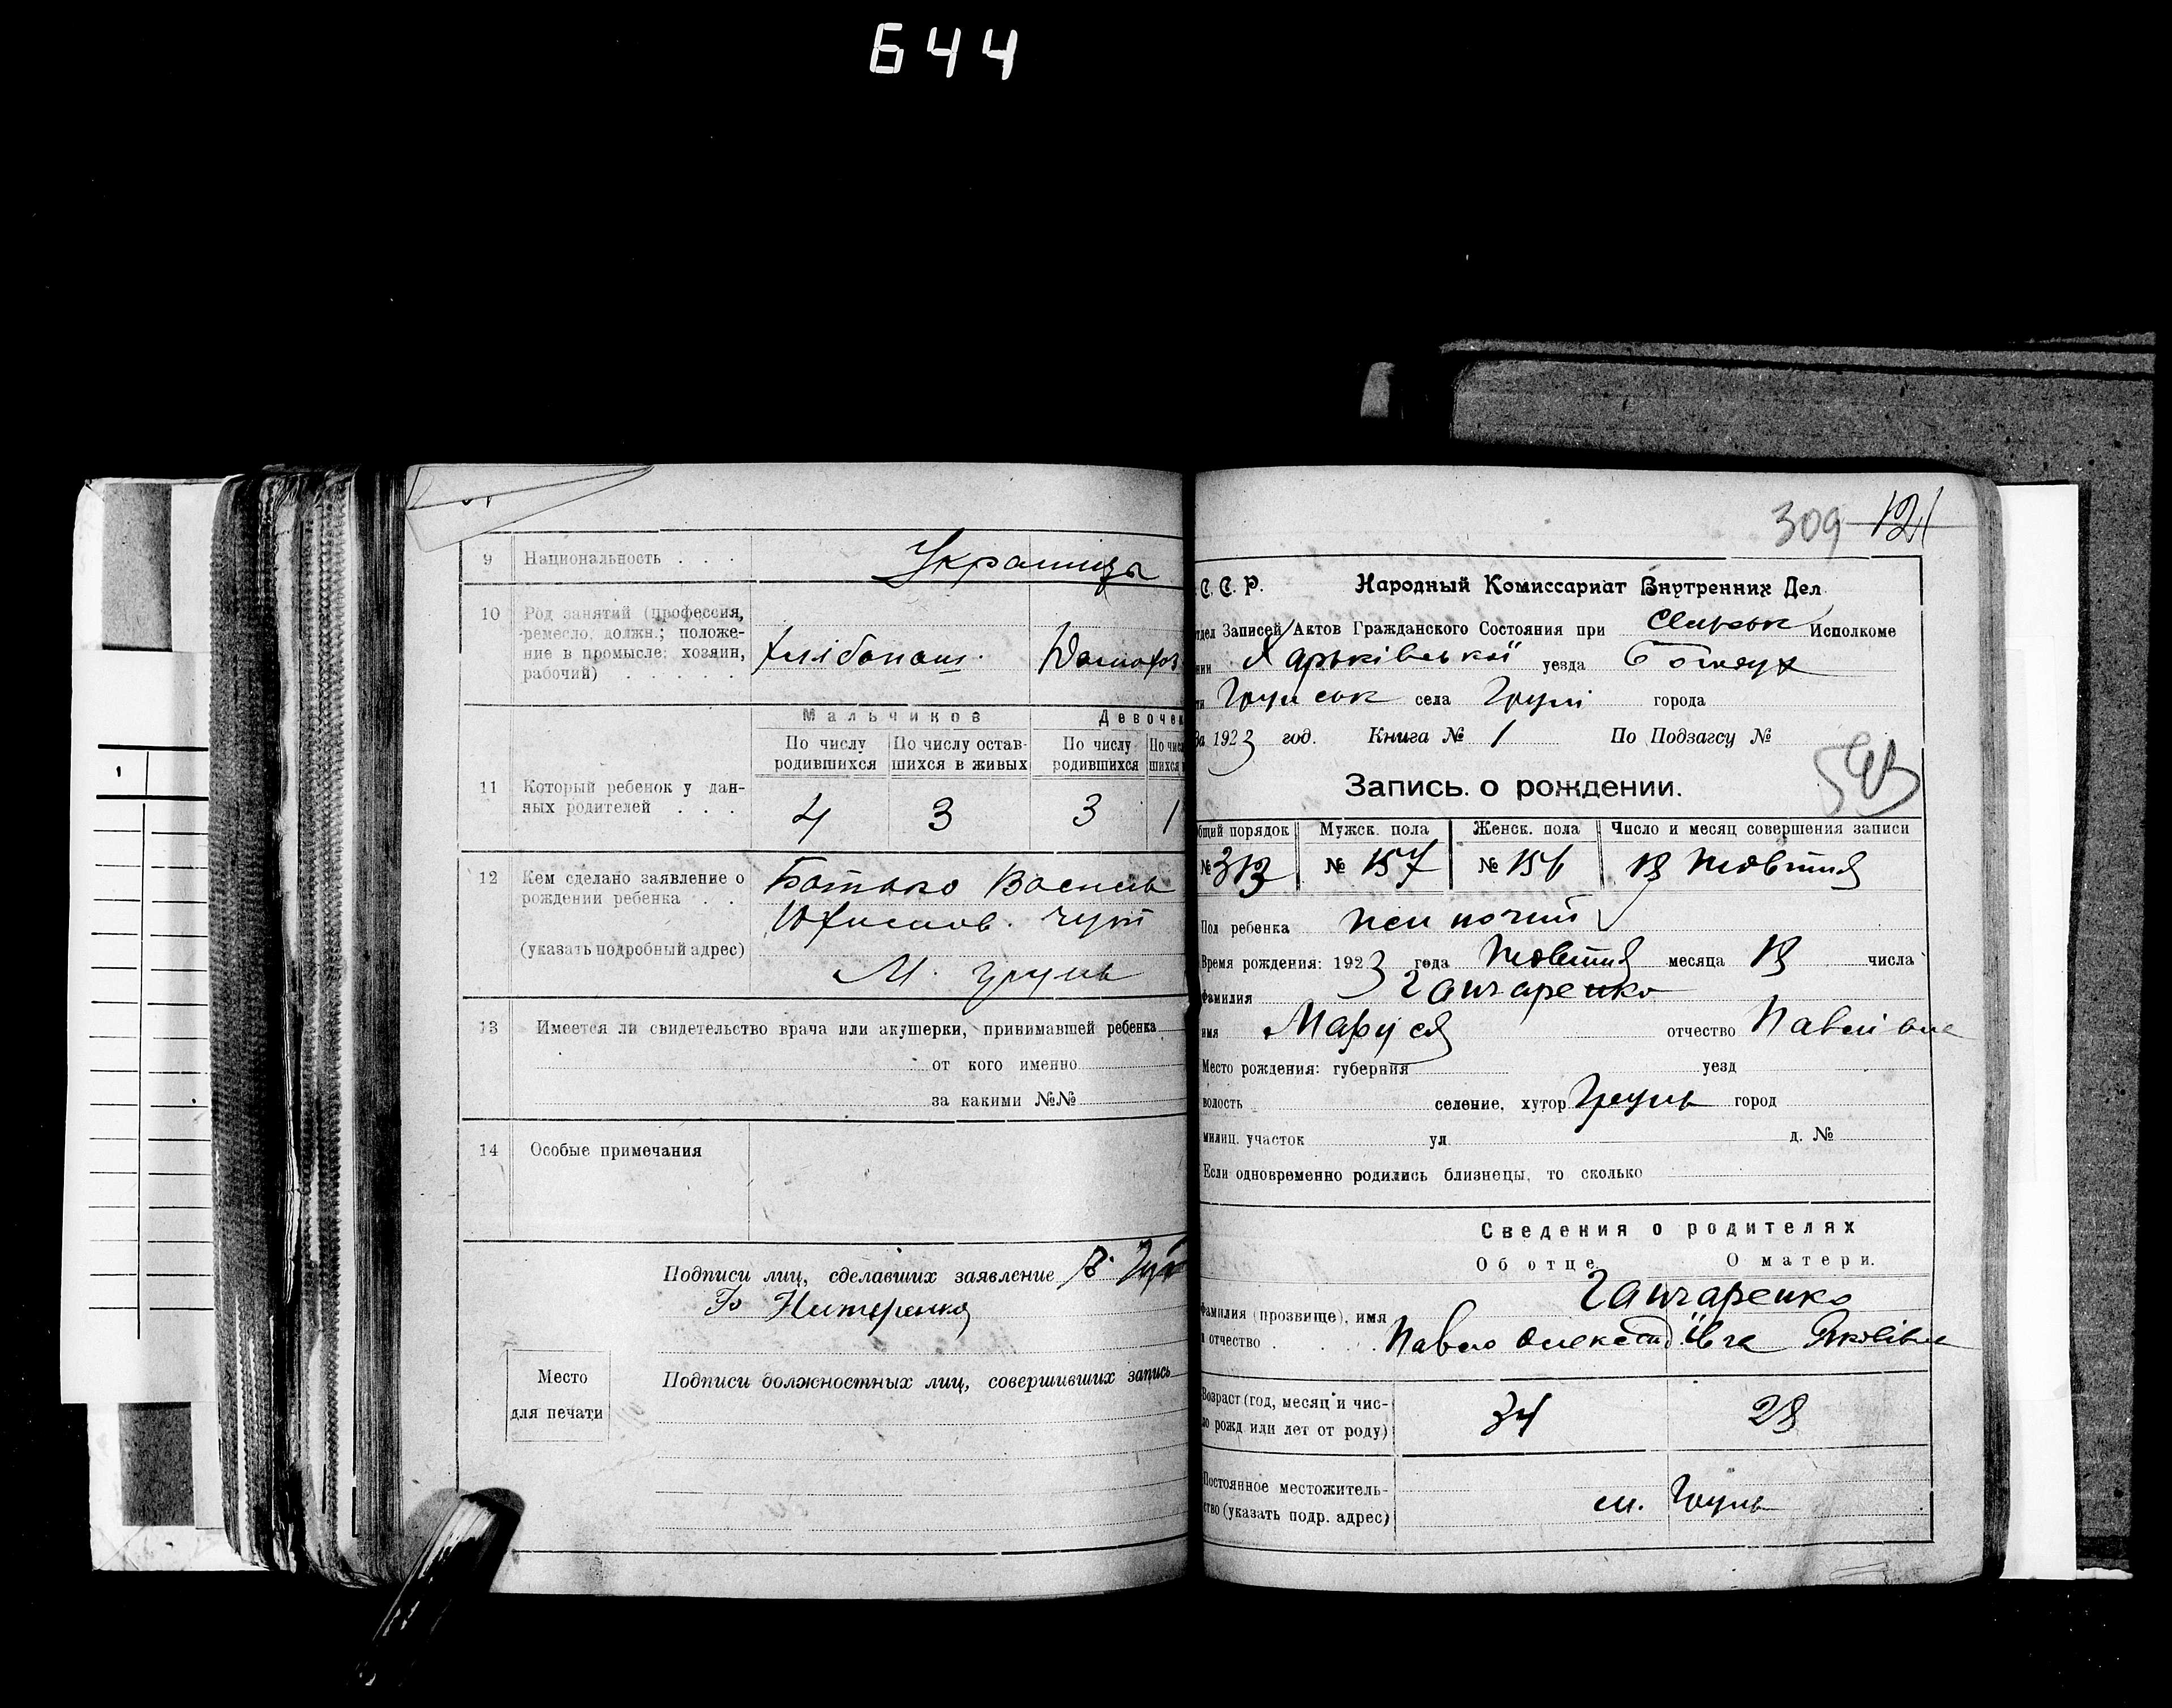 644
9 Национальность . . . Українці
10 Род занятий (профессия,
ремесло, должн.; положе-
ние в промысле: хозяин,
рабочий) . . . . .
Хлібопаш.
Мальчиков Девочек
По числу По числу остав- По числу
родившихся шихся в живых родившихся
11 Который ребенок у дан-
ных родителей . . .
4 3 3 1
12 Кем сделано заявление о
рождении ребенка . .
(указать подробный адрес)
Батько Василь
М. Грунь
13 Имеется ли свидетельство врача или акушерки, принимавшей ребенка
от кого именно
за какими №№
14 Особые примечания
Подписи лиц, сделавших заявление
Место
для печати
Подписи должностных лиц, совершивших запись
309 121
С. С. Р. Народный Комиссариат Внутренних Дел
Записей Актов Гражданского Состояния при Исполкоме
Харьківської уезда Богодух
села Груні города
За 1923 год. Книга № 1 По Подзагсу №
Запись о рождении.
порядок Мужск. пола Женск. пола Число и месяц совершения записи
№ 313 № 157 № 156 18 Жовтня
Пол ребенка жіночий
Время рождения: 1923 года Жовтня месяца 18 числа
Фамилия Ганчаренко
имя Маруся отчество Павлівна
Место рождения: губерния уезд
волость селение, хутор Грунь город
милиц. участок ул. д. №
Если одновременно родились близнецы, то сколько
Сведения о родителях
Об отце. О матери.
Ганчаренко
Фамилия (прозвище), имя
и отчество . . . . Павло Олександ Ївга Яковівна
Возраст (год, месяц и чис-
ло рожд или лет от роду)
34 28
Постоянное местожитель-
ство (указать подр. адрес)
м. Грунь